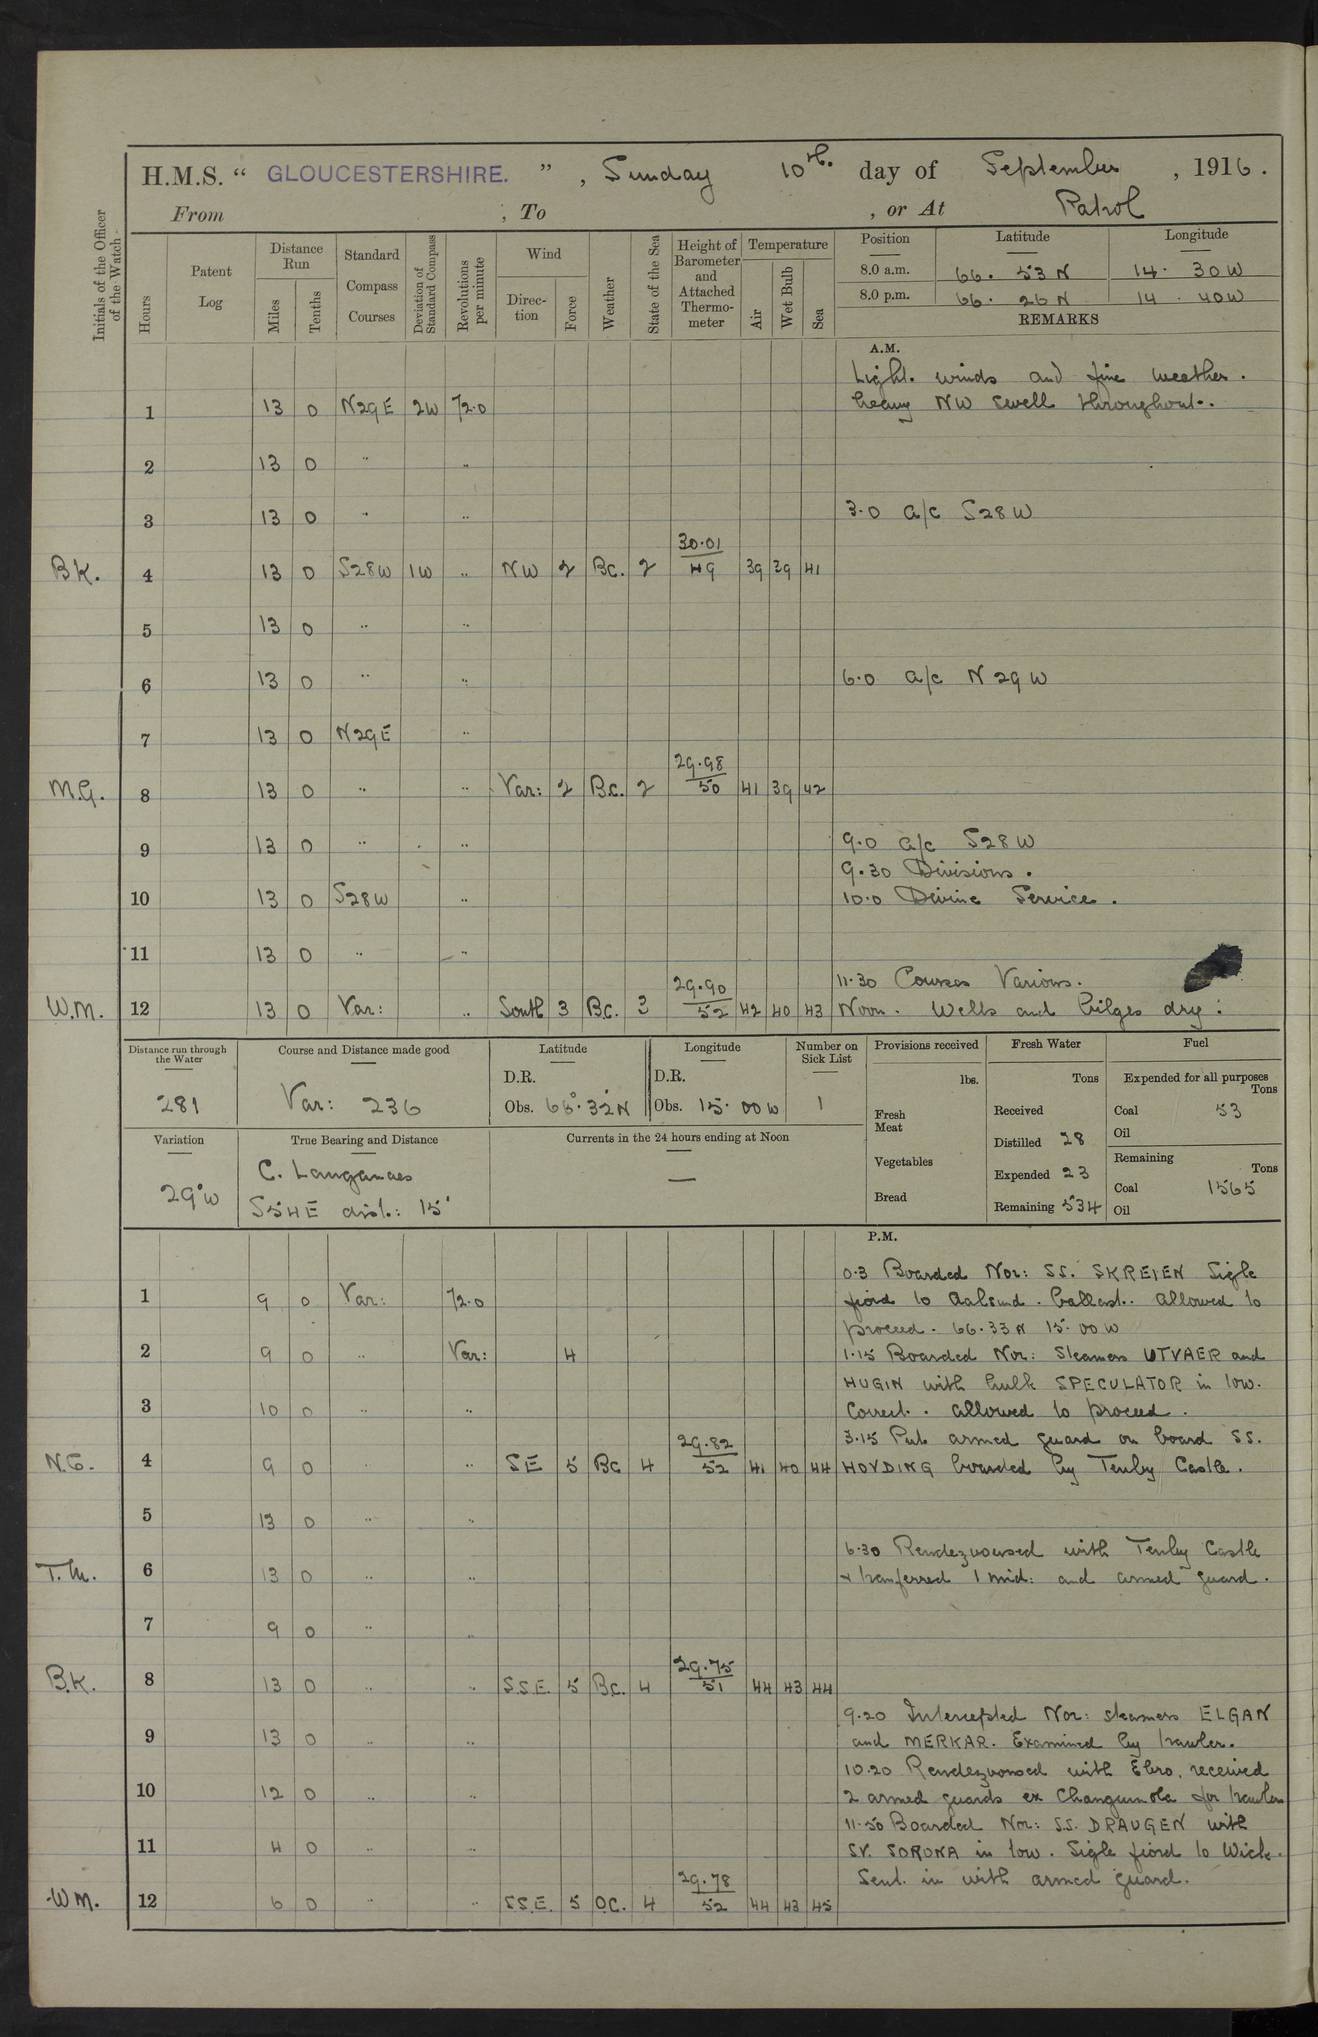 H.M.S. “ GLOUCESTERSHIRE. ” , Sunday 10th. day of September , 1916.
From , To , or At Patrol
Initials of the Officer of the Watch
Hours
Patent Log
Distance Run
Miles
Tenths
Standard Compass Courses
Deviation of Standard Compass
Revolutions per minute
Wind
Direction
Force
Weather
State of the Sea
Height of Barometer and Attached Thermometer
Temperature
Air
Wet Bulb
Sea
Position Latitude Longitude
8.0 a.m. 66. 53 N 14. 30 W
8.0 p.m. 66. 26 N 14. 40 W
REMARKS
A.M.
Light. winds and fine weather.
1 13 0 N29E 2W 72.0 heavy NW swell throughout.
2 13 0 " "
3 13 0 " " 3.0 a/c S28W
B.K. 4 13 0 S28W 1W " NW 2 BC. 2 30.01/49 39 39 41
5 13 0 " "
6 13 0 " " 6.0 a/c N29W
7 13 0 N29E "
M.G. 8 13 0 " " Var: 2 B.C. 2 29.98/50 41 39 42
9 13 0 " " 9.0 a/c S28W
9.30 Divisions.
10 13 0 S28W " 10.0 Divine Service.
11 13 0 " "
11.30 Courses Various.
W.M. 12 13 0 Var: " South 3 B.C. 3 29.90/52 42 40 43 Noon. Wells and bilges dry:
Distance run through the Water
281
Course and Distance made good
Var: 236
Latitude
D.R.
Obs. 66°. 32' N
Longitude
D.R.
Obs. 15. 00 W
Number on Sick List
1
Variation
29°W
True Bearing and Distance
C. Langanaes
S54E dist.: 15'
Currents in the 24 hours ending at Noon
—
Provisions received
lbs.
Fresh Meat
Vegetables
Bread
Fresh Water
Tons
Received
Distilled 28
Expended 23
Remaining 534
Fuel
Expended for all purposes
Tons
Coal 53
Oil
Remaining
Tons
Coal 1565
Oil
P.M.
0.3 Boarded Nor: SS. SKREIEN Sigle
1 9 0 Var: 72.0 fiord to Aalsund. ballast. allowed to
proceed. 66.33 N 15.00 W
2 9 0 " Var: 4 1.15 Boarded Nor: Steamers UTVAER and
HUGIN with hulk SPECULATOR in tow.
3 10 0 " " Correct. allowed to proceed.
3.15 Put armed guard on board SS.
N.G. 4 9 0 " " SE 5 BC 4 29.82/52 41 40 44 HOVDING boarded by Tenby Castle.
5 13 0 " "
6.30 Rendezvoused with Tenby Castle
T.M. 6 13 0 " " & transferred 1 mid: and armed guard.
7 9 0 " "
B.K. 8 13 0 " " S.S.E. 5 B.C. 4 29.75/51 44 43 44
9.20 Intercepted Nor: steamers ELGAN
9 13 0 " " and MERKAR. Examined by trawler.
10.20 Rendezvoused with Ebro, received
10 12 0 " " 2 armed guards ex Changuinola for trawlers
11.50 Boarded Nor: SS. DRAUGEN with
11 4 0 " " SV. SORONA in tow. Sigle fiord to Wick.
Sent. in with armed guard.
WM. 12 6 0 " " S.S.E. 5 O.C. 4 29.78/52 44 43 45